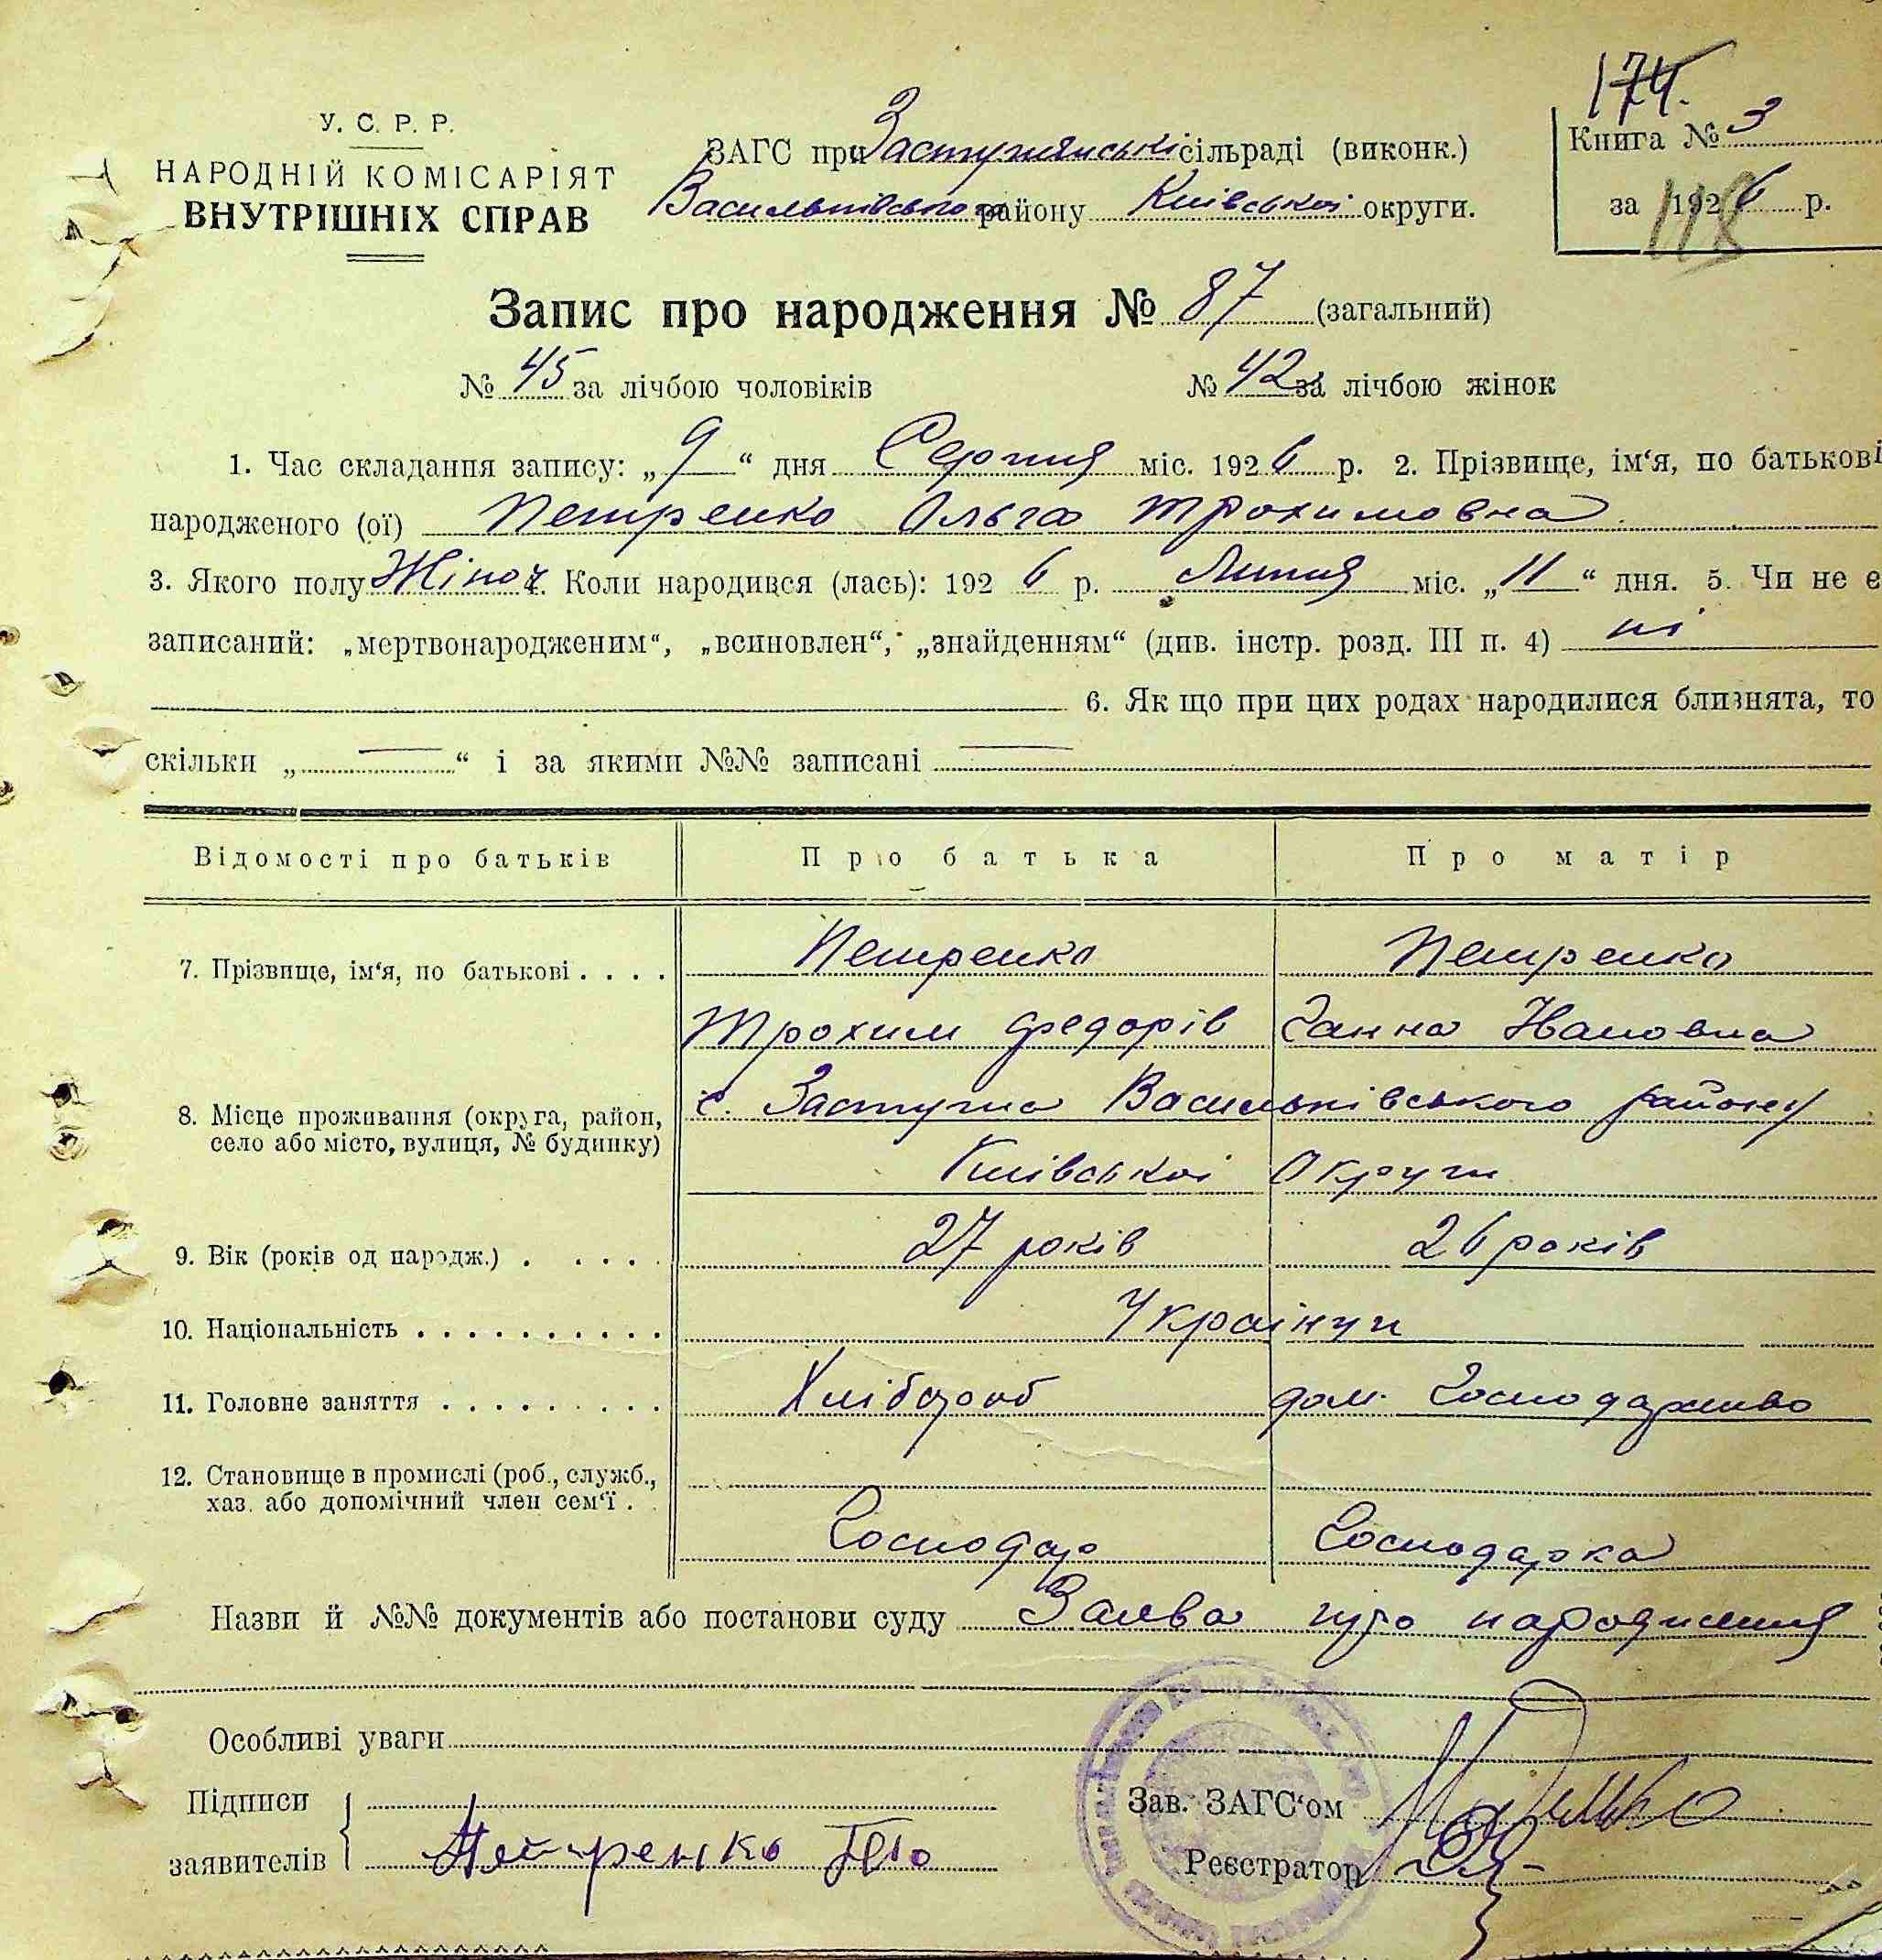 174.
У. С. Р. Р.
НАРОДНІЙ КОМІСАРІЯТ
ВНУТРІШНІХ СПРАВ
ЗАГС при Застугнянські сільраді (виконк.)
Васильківського району Київськоі округи.
Книга № 3
за 1926 р.
118
Запис про народження № 87 (загальний)
№ 45 за лічбою чоловіків № 42 за лічбою жінок
1. Час складання запису: „9“ дня Серпня міс. 1926 р. 2. Прізвище, ім‘я, по батькові
народженого (ої) Петренко Ольга Трохимовна
3. Якого полу Жіноч 4. Коли народився (лась): 1926 р. Липня міс. „11“ дня. 5. Чи не є
записаний: „мертвонародженим“, „всиновлен“, „знайденням“ (див. інстр. розд. III п. 4) ні
6. Як що при цих родах народилися близнята, то
скільки „ — “ і за якими №№ записані —
Відомості про батьків Про батька Про матір
7. Прізвище, ім‘я, по батькові . . . . Петренко Петренко
Трохим Федорів Ганна
8. Місце проживання (округа, район, с. Застугна Васильківського району
село або місто, вулиця, № будинку)
Київськоі Округи
9. Вік (років од народж.) . . . . . 27 років 26 років
10. Національність . . . . . . . . . . Украінци
11. Головне заняття . . . . . . . . . Хлібороб дом. Господарство
12. Становище в промислі (роб., служб.,
хаз. або допомічний член сем‘ї . .
Господар Господарка
Назви й №№ документів або постанови суду Заява про народження
Особливі уваги
Підписи
заявителів Петренко
Зав. ЗАГС‘ом
Реєстратор